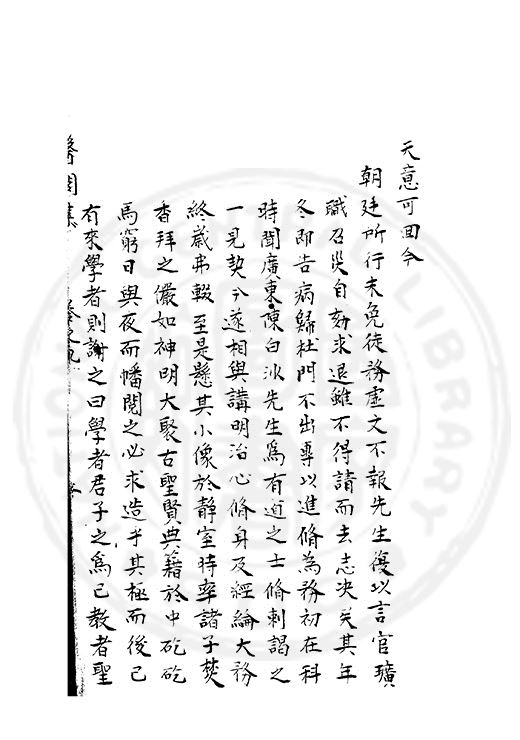 天意可回今
朝廷所行未免徒務虛文不報先生復以言官曠
職召災自劾求退雖不得請而去志决矣其年
冬即告病歸杜門不出專以進脩為務初在科
時聞廣東陳白沙先生爲有道之士脩刺謁之
一見契分遂相與講明治心脩身及經綸大務
終歲弗輟至是懸其小像於静室時率諸子焚
香拜之儼如神明大聚古聖賢典籍於中矻矻
焉窮日與夜而幡閱之必求造乎其極而後已
有來學者則謝之曰學者君子之爲已教者聖
醫閭集